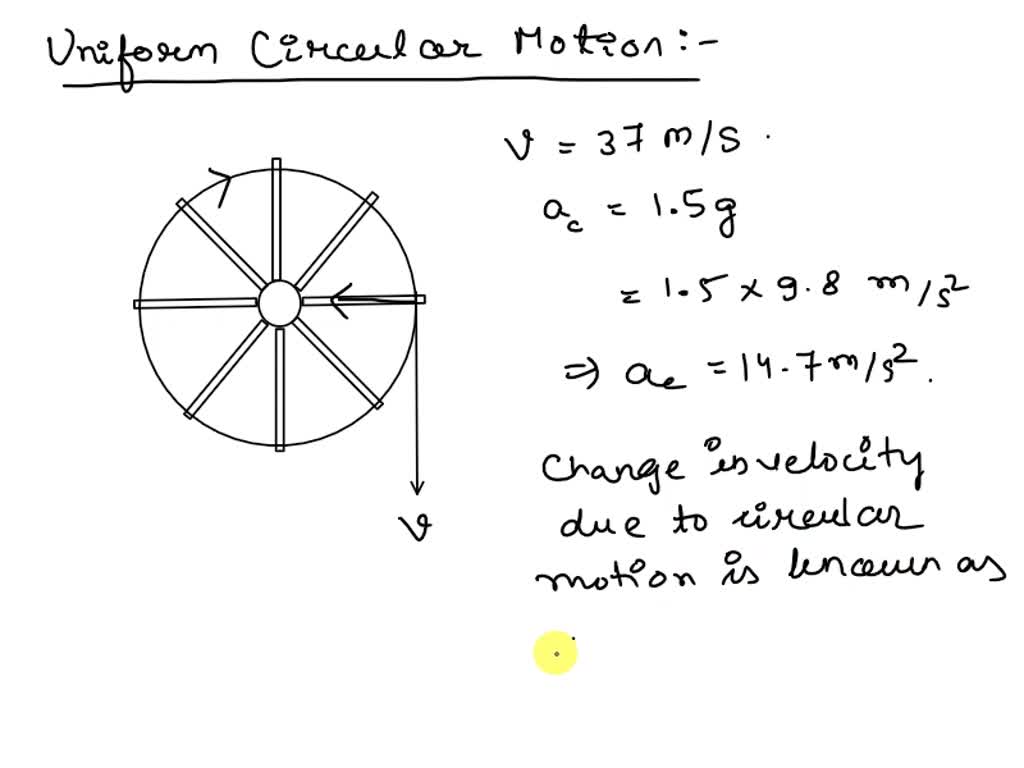 Uniform Circular Motion:-
v = 37 m/s.
a_c = 1.5g
= 1.5 × 9.8 m/s²
⇒ a_c = 14.7 m/s².
v
Change in velocity
due to circular
motion is known as